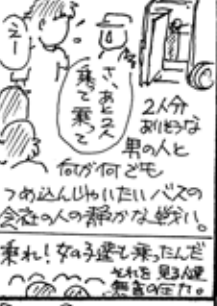 えー
さ、あと2人
乗って乗って
2人分
ありそうな
男の人と
何が何でも
つめ込んじゃいたいバスの
会社の人の静かな戦い。
乗れ!女の子達も乗ったんだ
それを見る人達
無言の圧力。